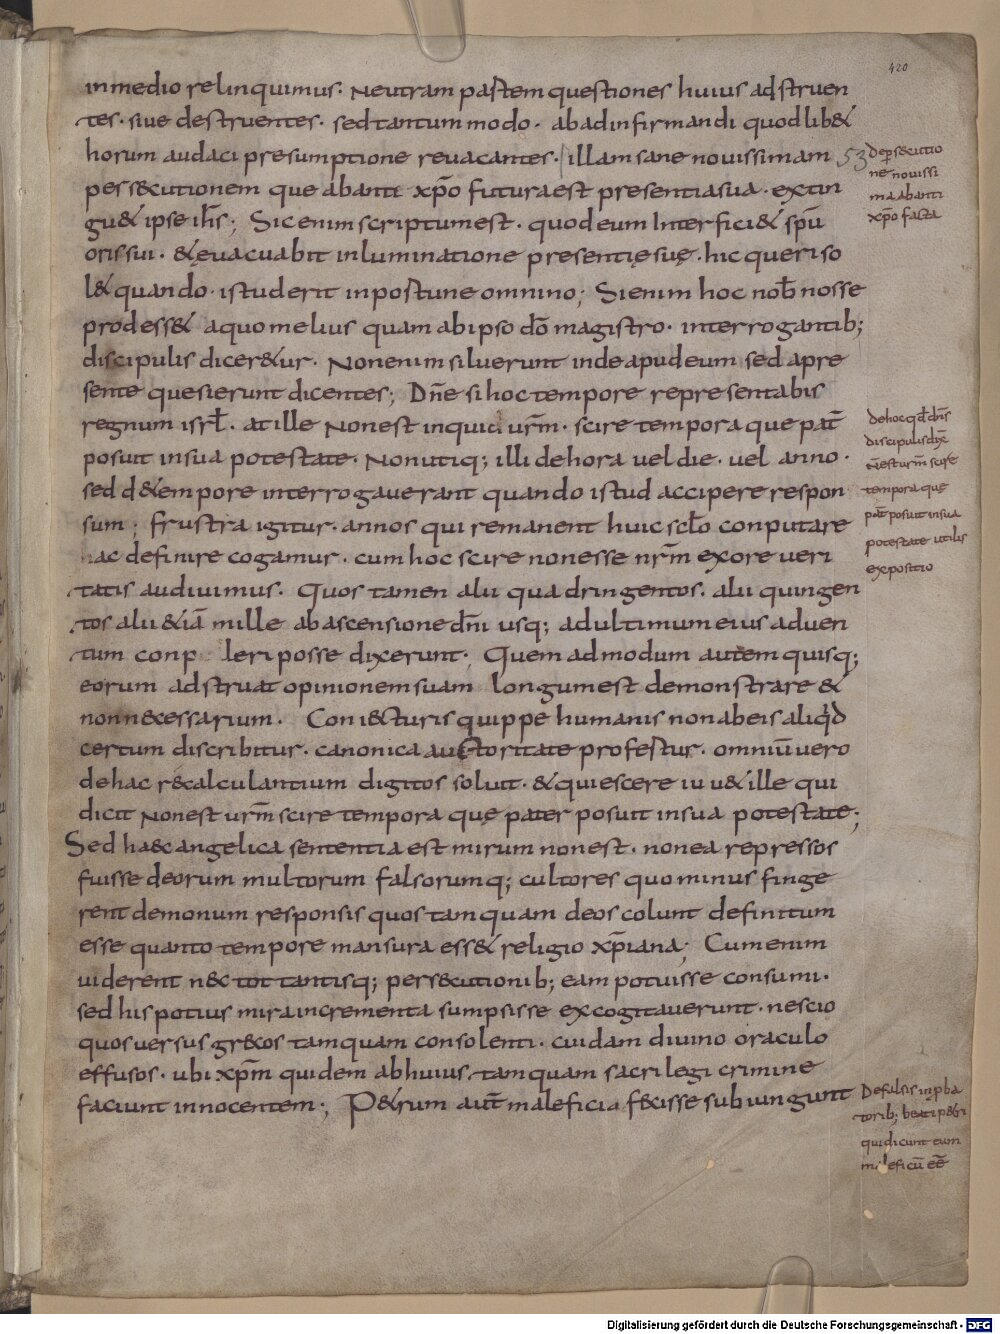 420
inmedio relinquimus. Neutram partem questiones huius adstruen
tes. siue destruentes. sed tantummodo. abadinfirmandi quodlib&
horum audaci presumptione reuacantes. illam sane nouissimam
pers&cutionem que abanti xp̄o futura est presentia sua. extin
gu& ipse ih̄s; Sic enim scriptum est. quod eum Interfici& sp̄u
oris sui. & euacuabit inluminatione presentię suę. hic queri so
l& quando. istud erit inportune omnino; Si enim hoc nob̄ nosse
prodess& a quo melius quam ab ipso dō magistro. interrogantib;
discipulis dicer&ur. Non enim siluerunt inde apud eum sed apre
sente quesierunt dicentes; Dn̄e si hoc tempore representabis
regnum isrl̄. at ille Non est inquid ur̄m. scire tempora que pat̄
posuit in sua potestate. Non utiq; illi de hora uel die. uel anno.
sed d& empore interrogauerant quando istud accipere respon
sum; frustra igitur. annos qui remanent huic scl̄o conputare
hac definire cogamur. cum hoc scire non esse nr̄m ex ore ueri
tatis audiuimus. Quos tamen alii quadringentos. alii quingen
tos alii &iā mille ab ascensione dn̄i usq; ad ultimum eius aduen
tum conp leri posse dixerunt. Quem ad modum autem quisq;
eorum adstruat opinionem suam longum est demonstrare &
non necessarium. Coniecturis quippe humanis non ab eis aliqd
certum discribitur. canonica auctoritate profertur. omniū uero
de hac re calculantium digitos soluit. & quiescere iu u& ille qui
dicit Non est ur̄m scire tempora quę pater posuit in sua potestate;
Sed haec angelica sententia est mirum non est. non ea repressos
fuisse deorum multorum falsorumq; cultores quo minus finge
rent demonum responsis quos tamquam deos colunt definitum
esse quanto tempore mansura ess& religio xp̄iana; Cum enim
uiderent nec tot tantisq; persecutionib; eam potuisse consumi.
sed his potius mira incrementa sumpsisse excogitauerunt. nescio
quos uersus grecos tamquam consolenti. cuidam diuino oraculo
effusos. ubi xp̄m quidem ab huius tamquam sacrilegi crimine
faciunt innocentem; P&rum aut̄ maleficia fecisse subiungunt
53
de persecutio
ne nouissi
ma abanti
xp̄o facta
de hoc qd̄ dn̄s
discipulis dix̄
n̄ est ur̄m scire
tempora que
pat̄ posuit in sua
potestate utilis
expositio
De falsis inp̱ba
torib; beati p&ri
qui dicunt eum
maleficū eē
Digitalisierung gefördert durch die Deutsche Forschungsgemeinschaft - DFG